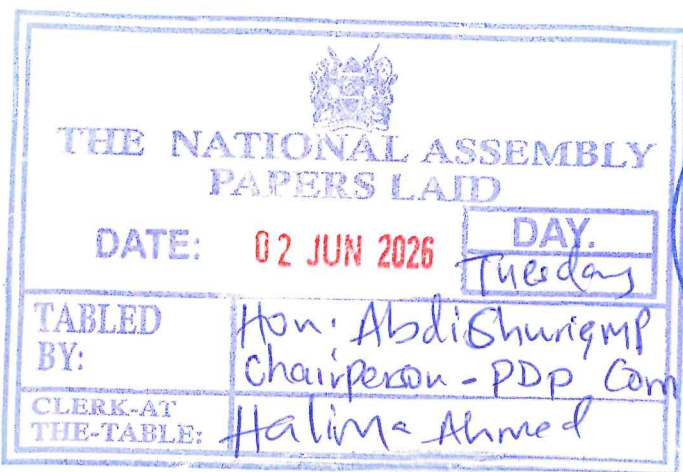 THE NATIONAL ASSEMBLY
PAPERS LAID
DATE: 02 JUN 2026
DAY.
Tuesday
TABLED BY:
Hon. Abdi Shurie MP
Chairperson - PDP Com
CLERK-AT THE-TABLE: Halima Ahmed